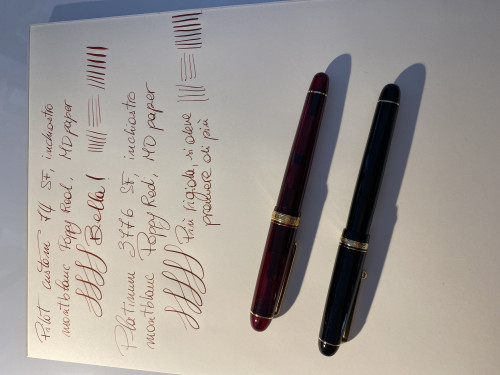 Pilot custom 74 SF, inchiostro
montblanc Poppy Red, MD paper
Bella!
Platinum 3776 SF, inchiostro
montblanc Poppy Red, MD paper
Più rigida, si deve
premere di più